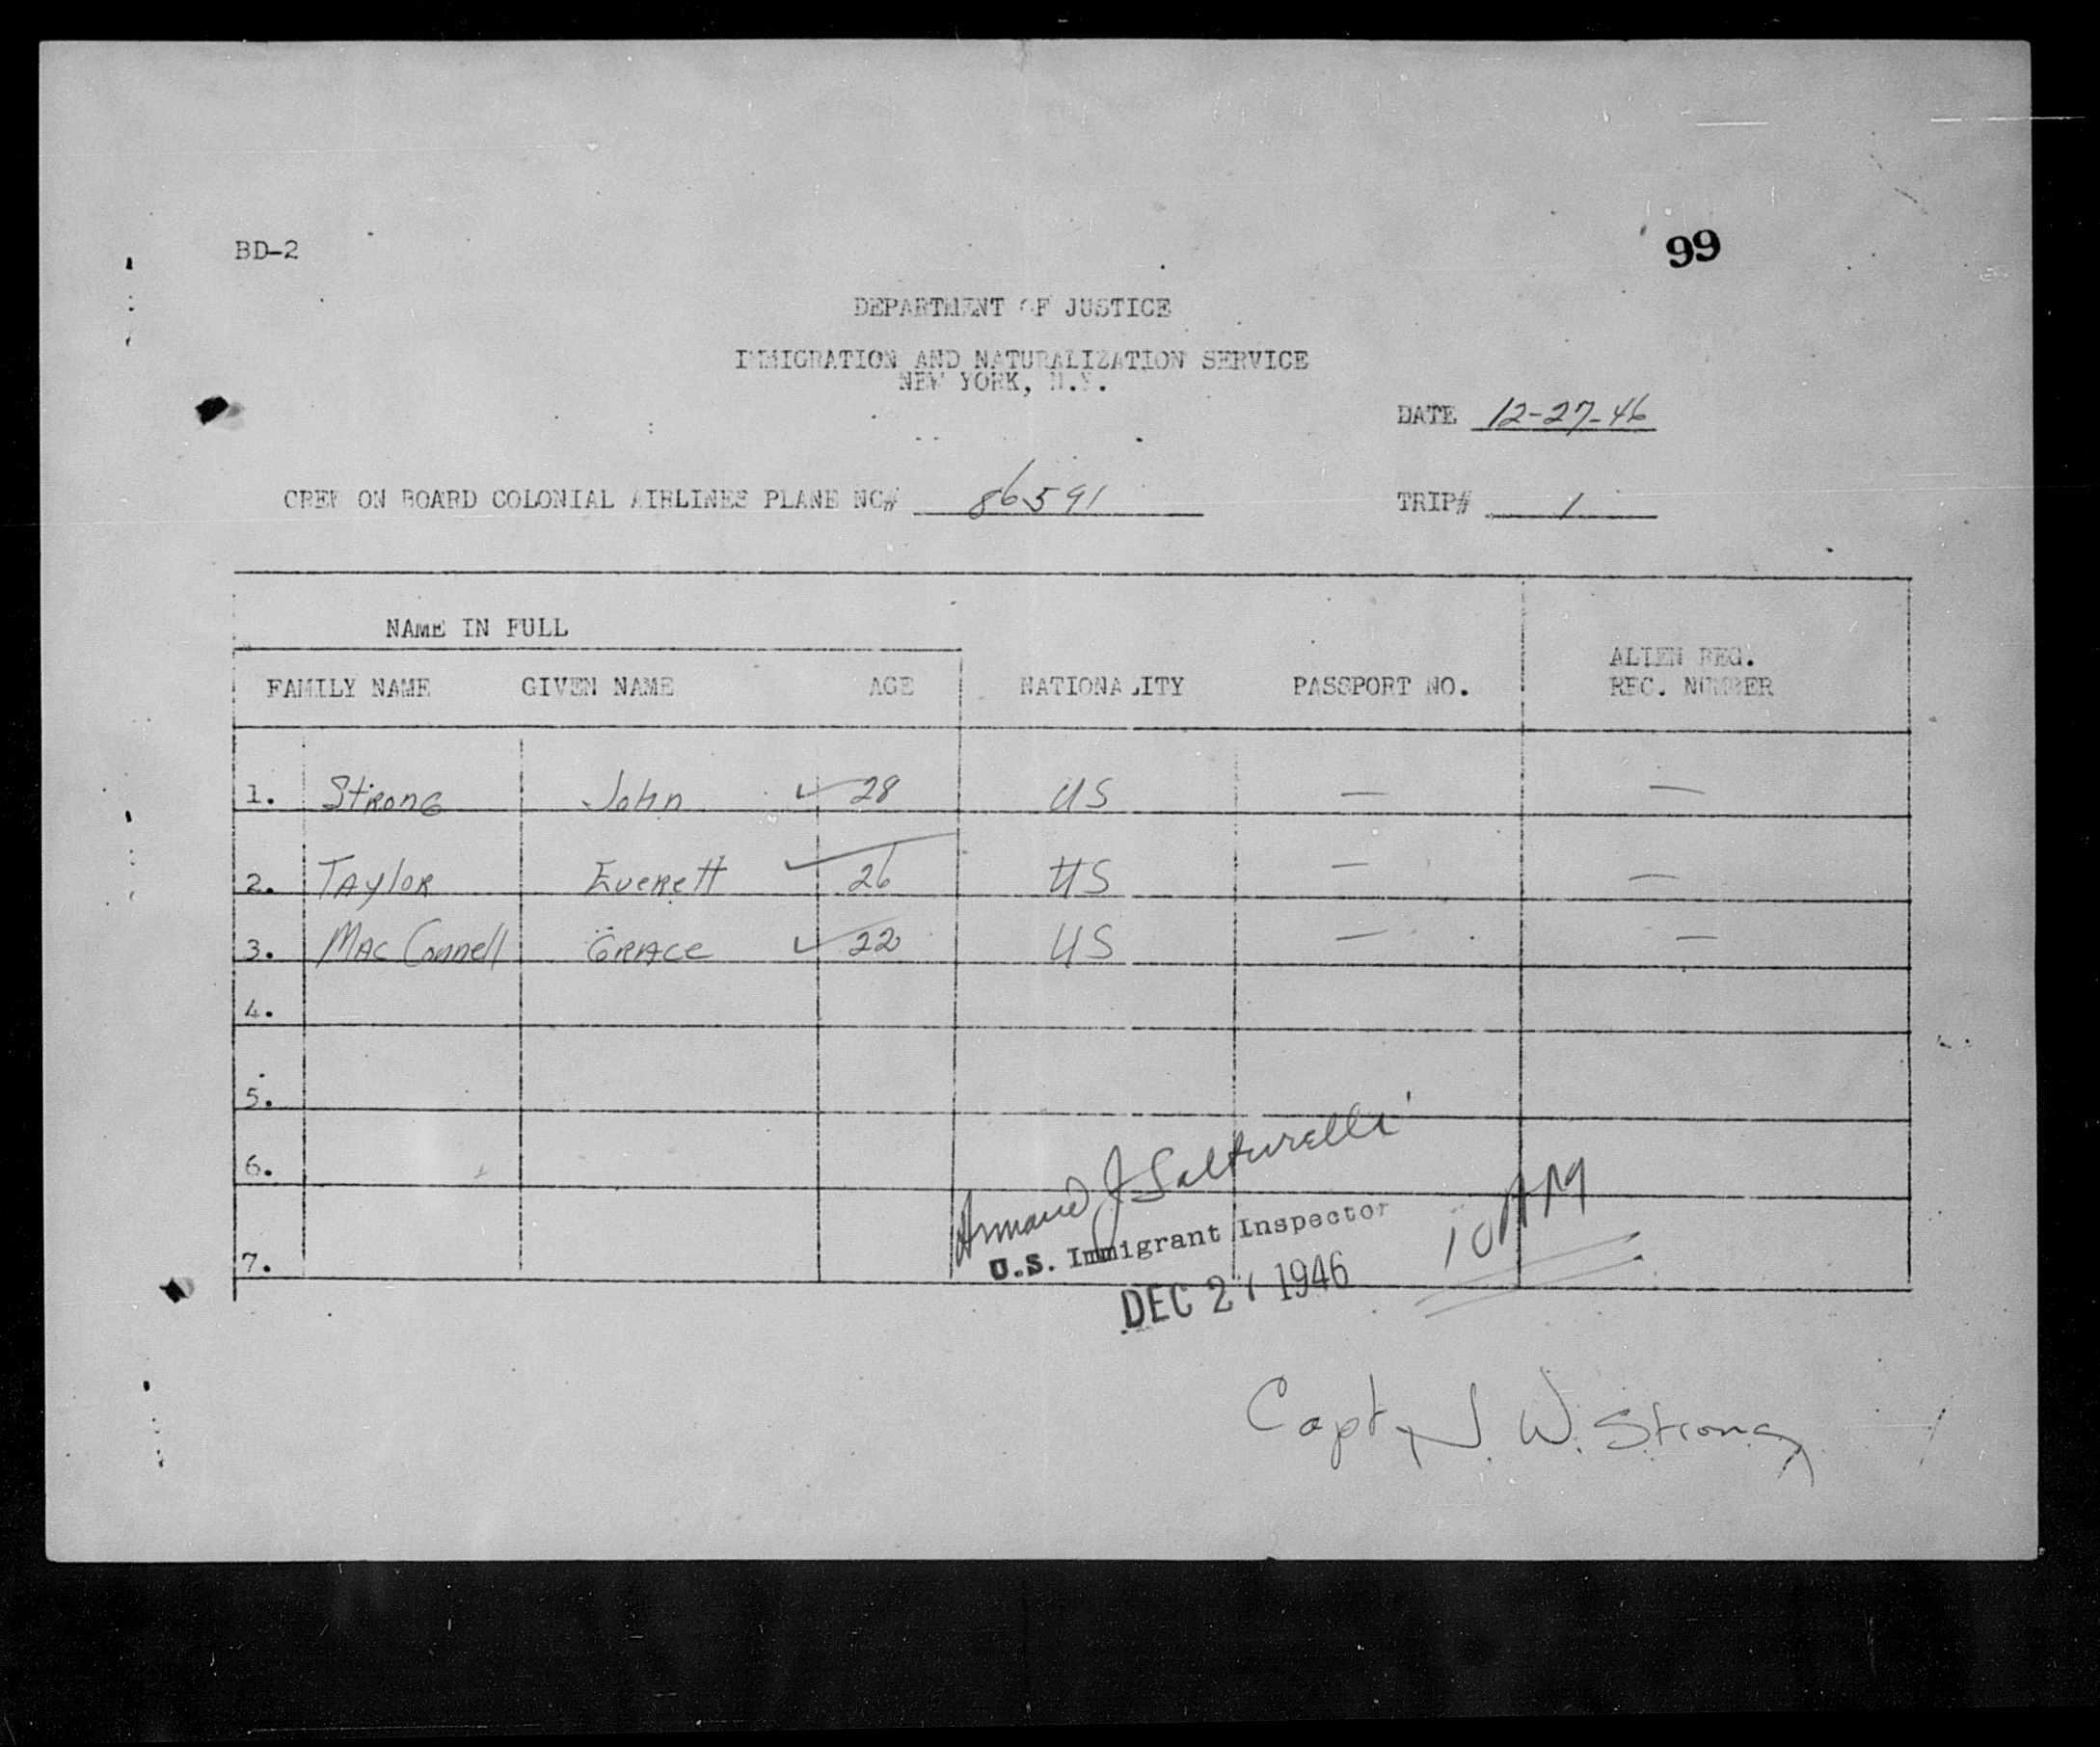 BD-2
99
DEPARTMENT OF JUSTICE
IMMIGRATION AND NATURALIZATION SERVICE
NEW YORK, N.Y.
DATE 12-27-46
CREW ON BOARD COLONIAL AIRLINES PLANE NC# 86591 TRIP# 1
NAME IN FULL
FAMILY NAME GIVEN NAME AGE NATIONALITY PASSPORT NO. ALIEN REG. REC. NUMBER
1. Strong John ✓ 28 US — —
2. Taylor Everett ✓ 26 US — —
3. Mac Connell Grace ✓ 22 US — —
4.
5.
6.
7.
Armand J Salturelli
U.S. Immigrant Inspector
10 AM
DEC 27 1946
Capt J. W. Strong